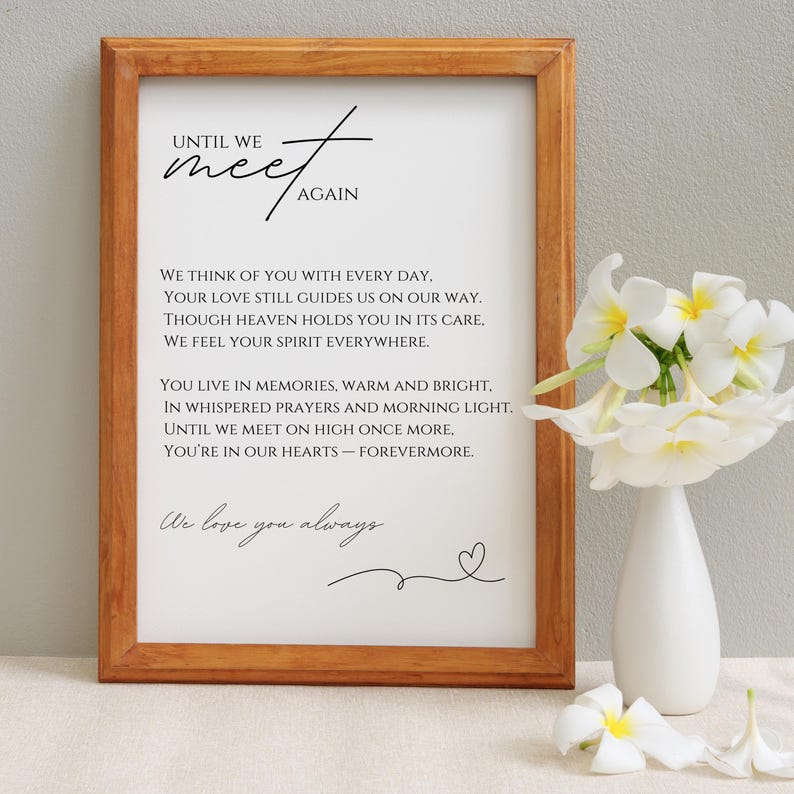 UNTIL WE
meet
AGAIN
WE THINK OF YOU WITH EVERY DAY,
YOUR LOVE STILL GUIDES US ON OUR WAY.
THOUGH HEAVEN HOLDS YOU IN ITS CARE,
WE FEEL YOUR SPIRIT EVERYWHERE.
YOU LIVE IN MEMORIES, WARM AND BRIGHT,
IN WHISPERED PRAYERS AND MORNING LIGHT.
UNTIL WE MEET ON HIGH ONCE MORE,
YOU'RE IN OUR HEARTS — FOREVERMORE.
We love you always